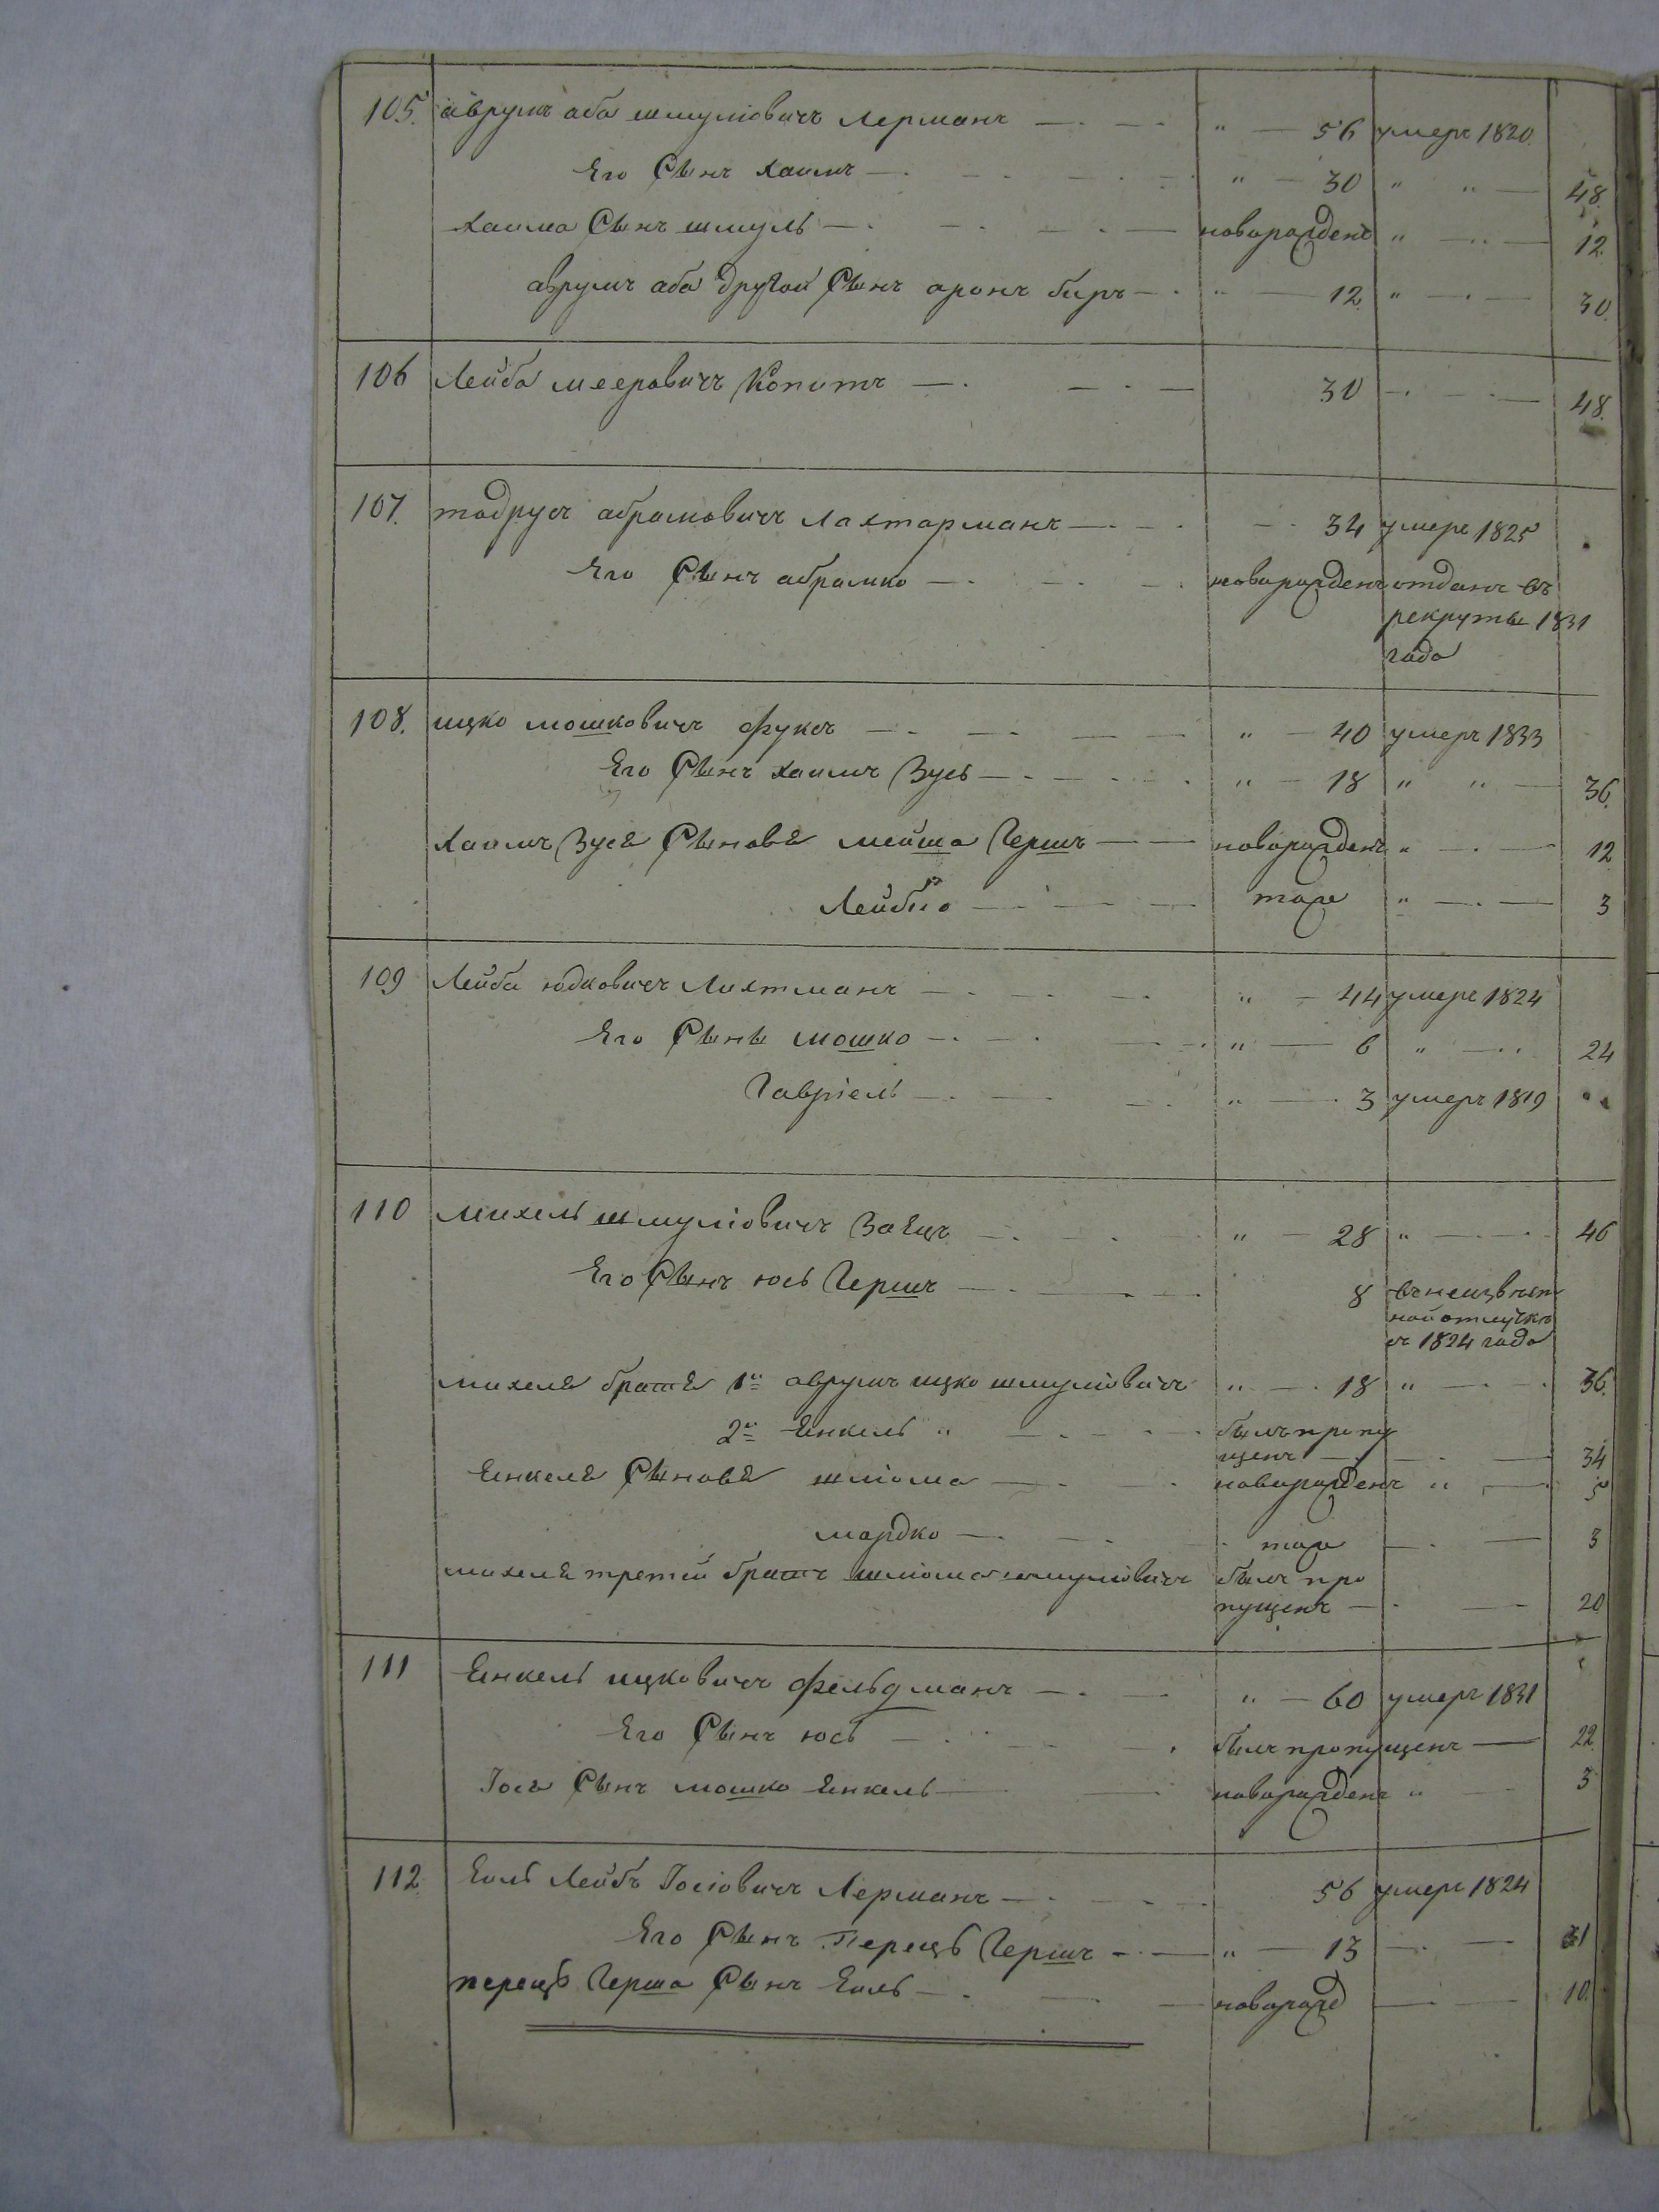 105. аврумъ аба шмуліовичъ Лерманъ — " — 56 умеръ 1820
Его Сынъ хаимъ — " — 30 " " — 48.
хаима Сынъ шмуль — новорожденъ " — 12.
аврумъ аба другой Сынъ аронъ беръ — " — 12. " — 30.
106 Лейба мееровичъ Копитъ — 30 — 48.
107. тодрусъ абрамовичъ Лахтарманъ — 34 умеръ 1825
Его Сынъ абрамко — новорожденъ отданъ въ
рекруты 1831
года
108. ицко мошковичъ фуксъ — " — 40 умеръ 1833
Его Сынъ хаимъ Зусь — " — 18 " " — 36.
хаимъ Зуся Сыновя мойша Гершъ — новорожденъ " — 12
Лейбко — тоже " — 3
109 Лейба юдковичъ Лихтманъ — " — 44 умеръ 1824
Его Сыны мошко — " — 6 " — 24
Гавріель — " — 3 умеръ 1819
110 михель шмуліовичъ Заецъ — " — 28 " — 46
Его Сынъ юсь Гершъ — 8 въ неизвѣст
ной отлучкѣ
съ 1824 года
михеля братя 1й аврумъ ицко шмуліовичъ " — 18 " — 36.
2й Янкель " — былъ пропу
щенъ — 34
Янкеля Сыновя шліома — новорожденъ " — 5
мордко — тоже — 3
михеля третій братъ шліома шмуліовичъ былъ про
пущенъ — 20
111 Янкель ицковичъ фельдманъ — " — 60 умеръ 1831
Его Сынъ юсь — былъ пропущенъ — 22
Іося Сынъ мошко Янкель — новорожденъ " — 3
112 Ель Лейбъ Іосіовичъ Лерманъ — 56 умеръ 1824
Его Сынъ Перецъ Гершъ — " — 13 — 31
перецъ Герша Сынъ Ель — новорожд — 10.